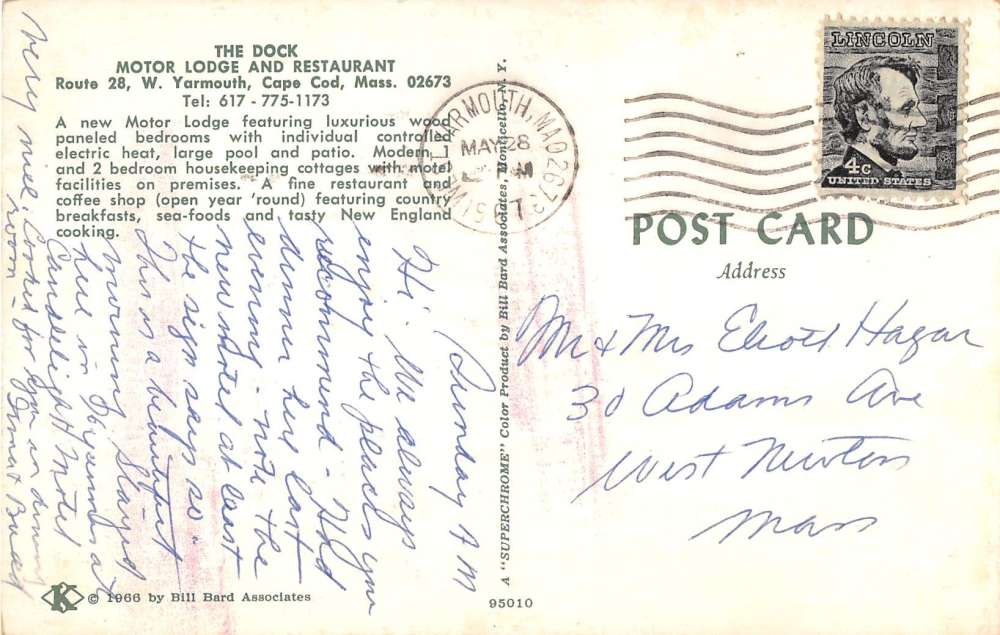 THE DOCK
MOTOR LODGE AND RESTAURANT
Route 28, W. Yarmouth, Cape Cod, Mass. 02673
Tel: 617 - 775-1173
A new Motor Lodge featuring luxurious wood
paneled bedrooms with individual controlled
electric heat, large pool and patio. Modern 1
and 2 bedroom housekeeping cottages with motel
facilities on premises. A fine restaurant and
coffee shop (open year 'round) featuring country
breakfasts, sea-foods and tasty New England
cooking.
Sunday AM
Hi. We always
enjoy the places you
recommend - Had
dinner here last
evening - note the
new motel at least
the sign says so.
This is a beautiful
morning Stayed
here in Hyannis at
Candlelight Motel
very nice. Looked for you on
soon -
A "SUPERCHROME" Color Product by Bill Bard Associates, Monticello, N. Y.
K © 1966 by Bill Bard Associates
95010
YARMOUTH, MA 02673
MAY 28
LINCOLN
4c
UNITED STATES
POST CARD
Address
Mr & Mrs Eliott Hagar
30 Adams Ave
West Newton
Mass